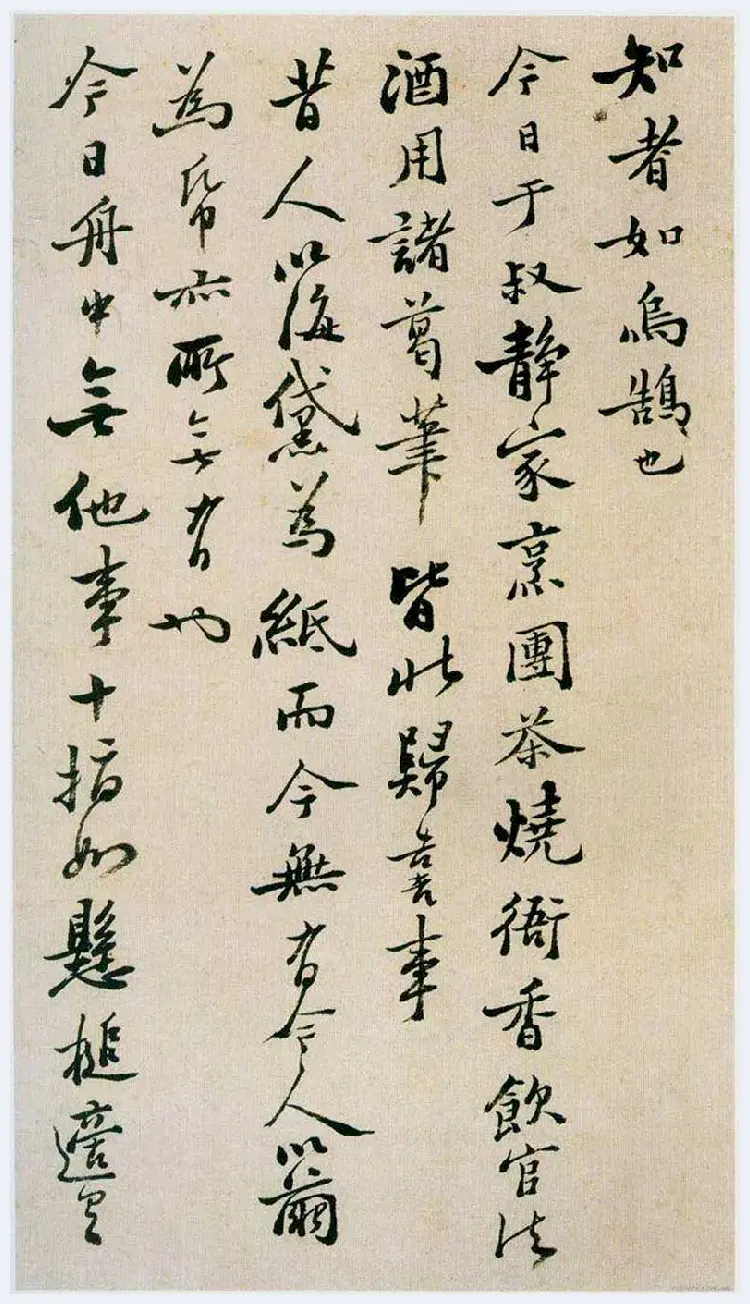 知者如烏鵲也
今日于叔靜家烹團茶燒衙香飲官法
酒用諸葛筆皆北歸喜事
昔人以海黛為紙而今無有今人以繭
為帋亦所無有也
今日舟中無他事十指如懸槌適